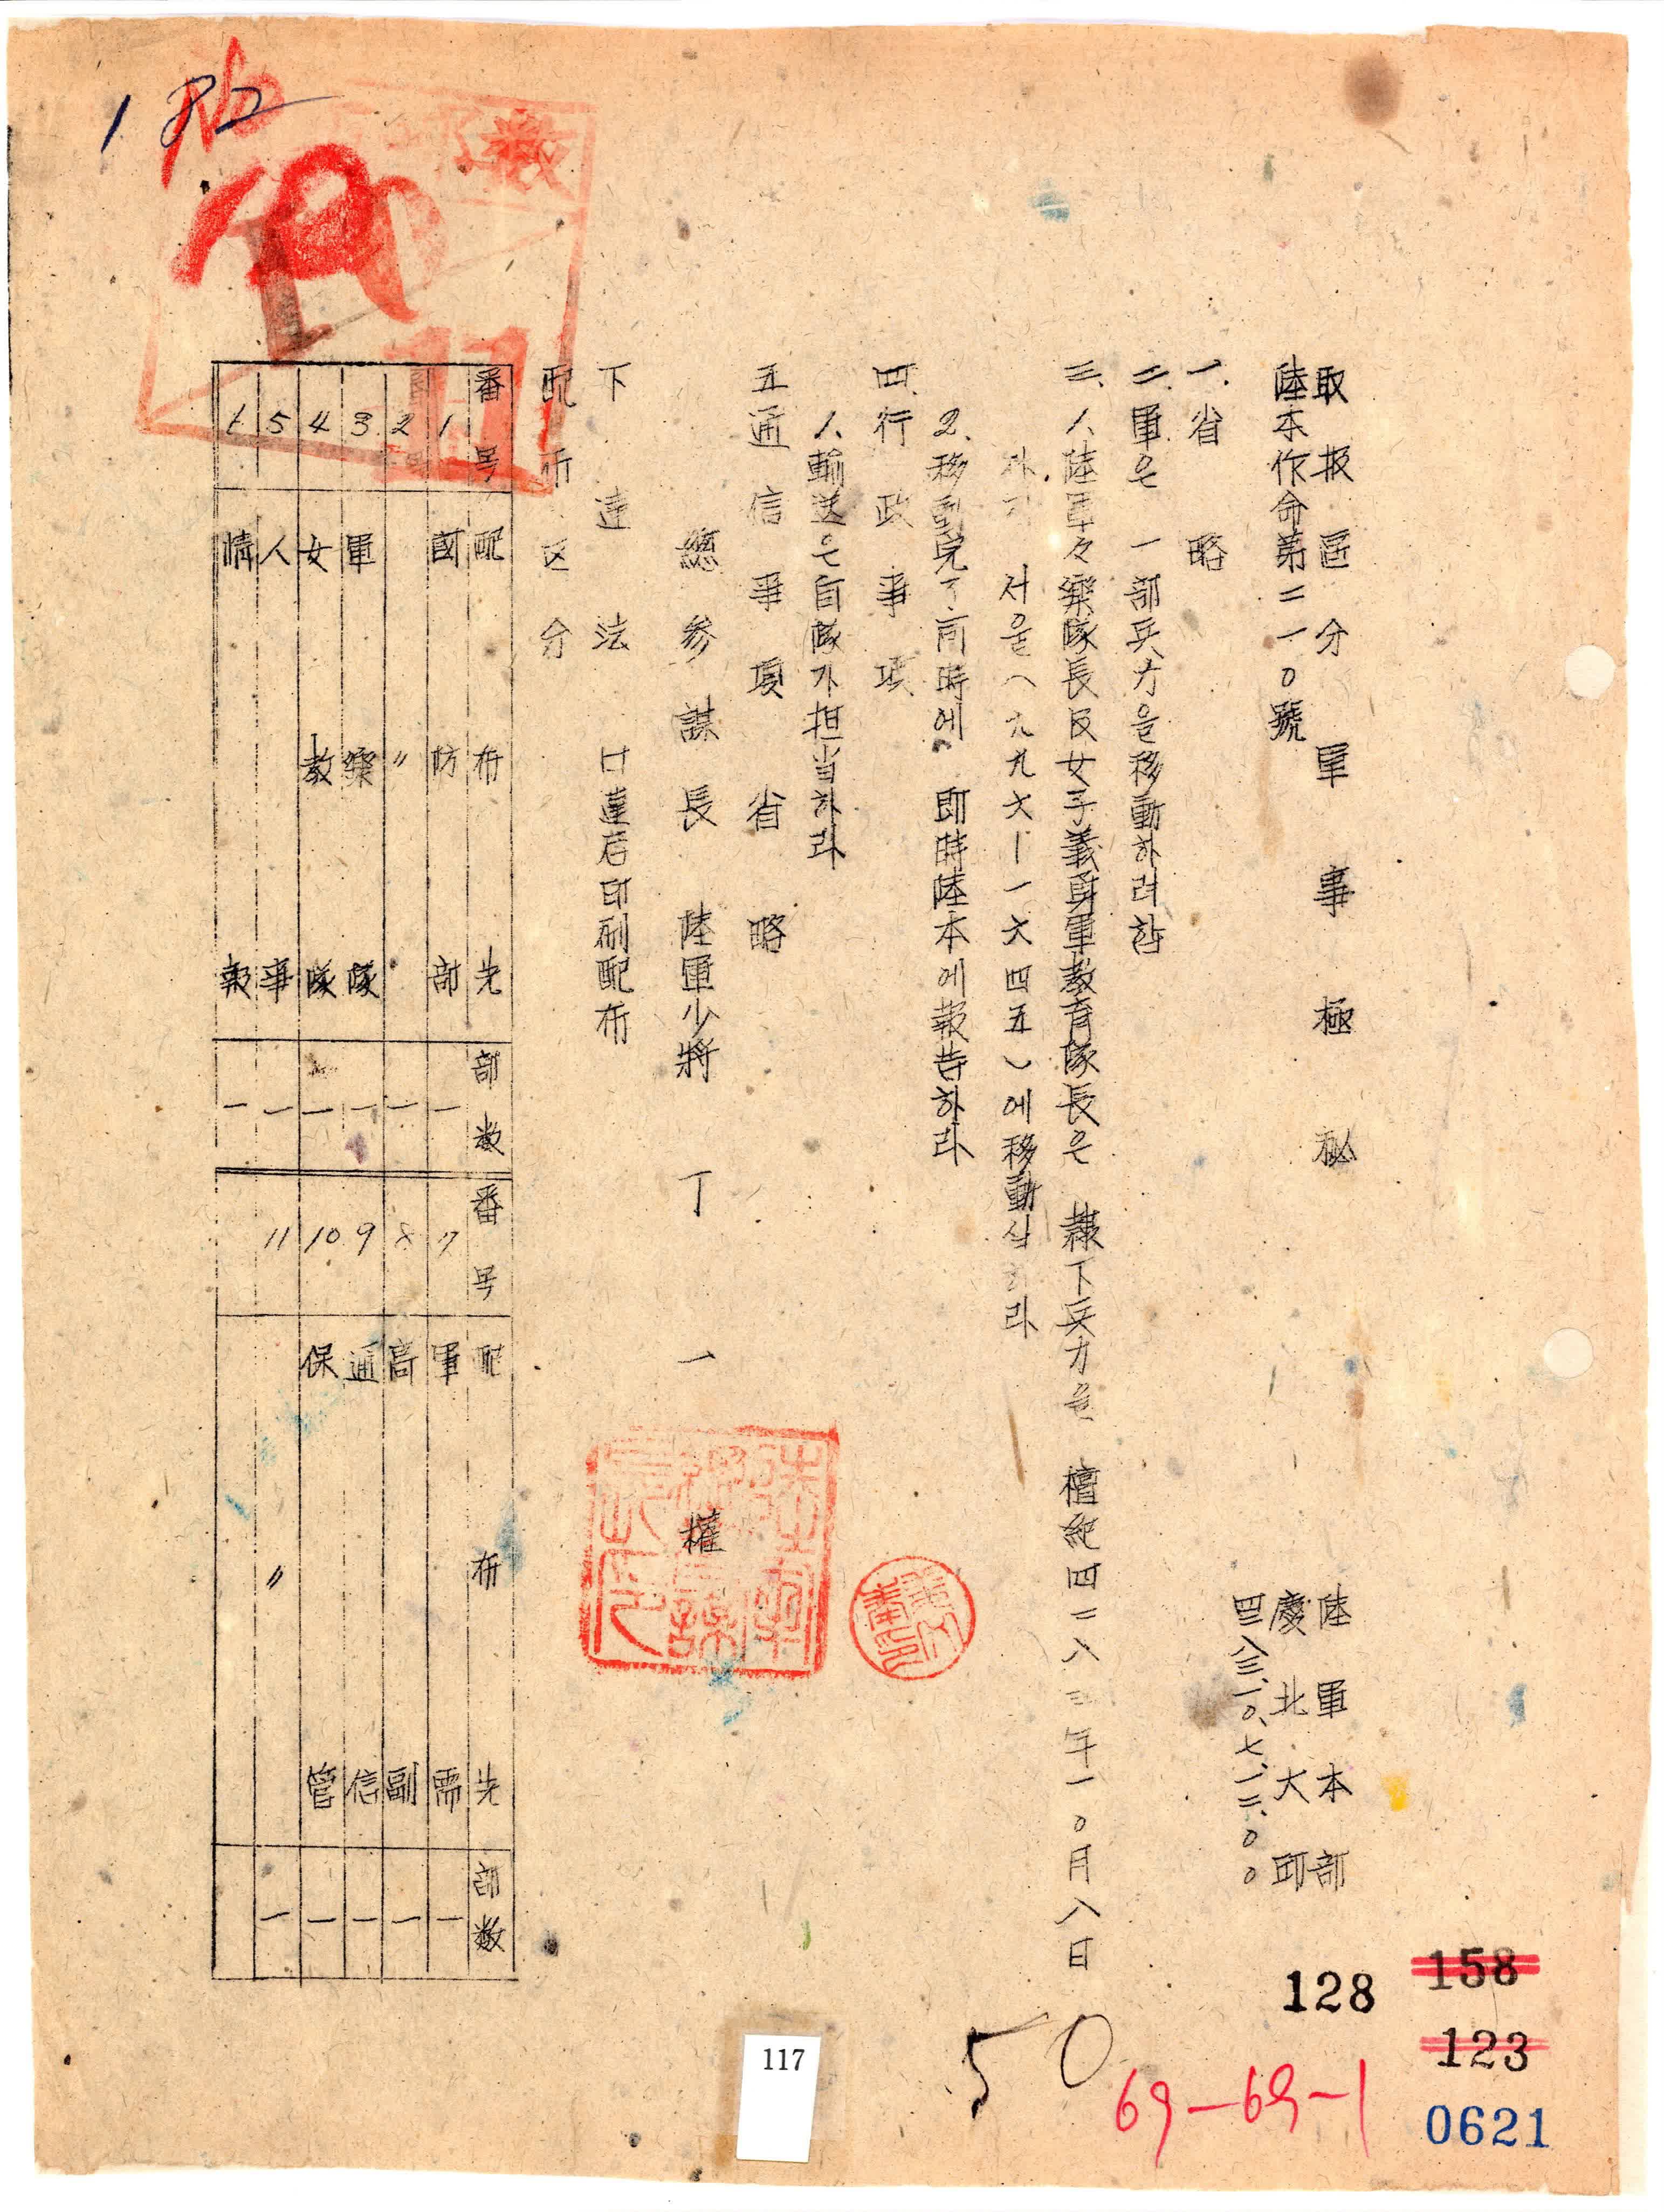 取扱區分 軍事極秘
陸軍本部
陸本作命第二一0號
慶北大邱
四二八三、一0、七、一二、00
一、省略
二、軍은 一部兵力을移動하려함
三、1、陸軍々樂隊長及女子義勇軍敎育隊長은 隷下兵力을 檀紀四二八三年一0月八日
까지 서울(九九六—一六四五)에移動식히라
2、移動完了同時에 即時陸本에報告하라
四、行政事項
1、輸送은自隊가担当하라
五 通信事項 省略
總參謀長 陸軍少將 丁一權
下達法 口達后印刷配布
配布区分
番号 配布先 部数 番号 配布先 部数
1 國防部 一 7 軍需 一
2 〃 一 8 高副 一
3 軍樂隊 一 9 通信 一
4 女敎隊 一 10 保管 一
5 人事 一 11 〃 一
6 情報 一
182
50
69-69-1
128
158
123
0621
117